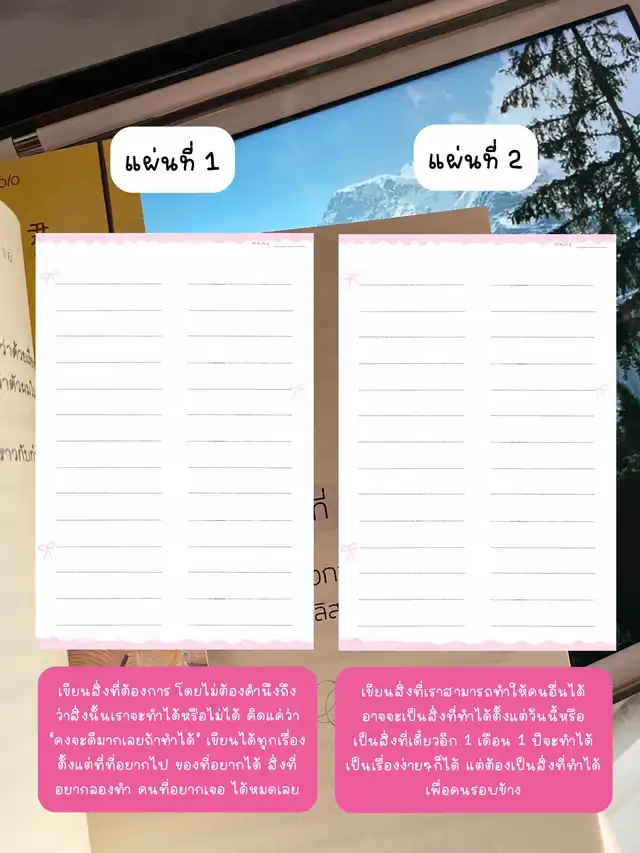 แผ่นที่ 1
แผ่นที่ 2
เขียนสิ่งที่ต้องการ โดยไม่ต้องคำนึงถึง
ว่าสิ่งนั้นเราจะทำได้หรือไม่ได้ คิดแค่ว่า
‘คงจะดีมากเลยถ้าทำได้’ เขียนได้ทุกเรื่อง
ตั้งแต่ที่ที่อยากไป ของที่อยากได้ สิ่งที่
อยากลองทำ คนที่อยากเจอ ได้หมดเลย
เขียนสิ่งที่เราสามารถทำให้คนอื่นได้
อาจจะเป็นสิ่งที่ทำได้ตั้งแต่วันนี้หรือ
เป็นสิ่งที่เดี๋ยวอีก 1 เดือน 1 ปีจะทำได้
เป็นเรื่องง่ายๆก็ได้ แต่ต้องเป็นสิ่งที่ทำได้
เพื่อคนรอบข้าง